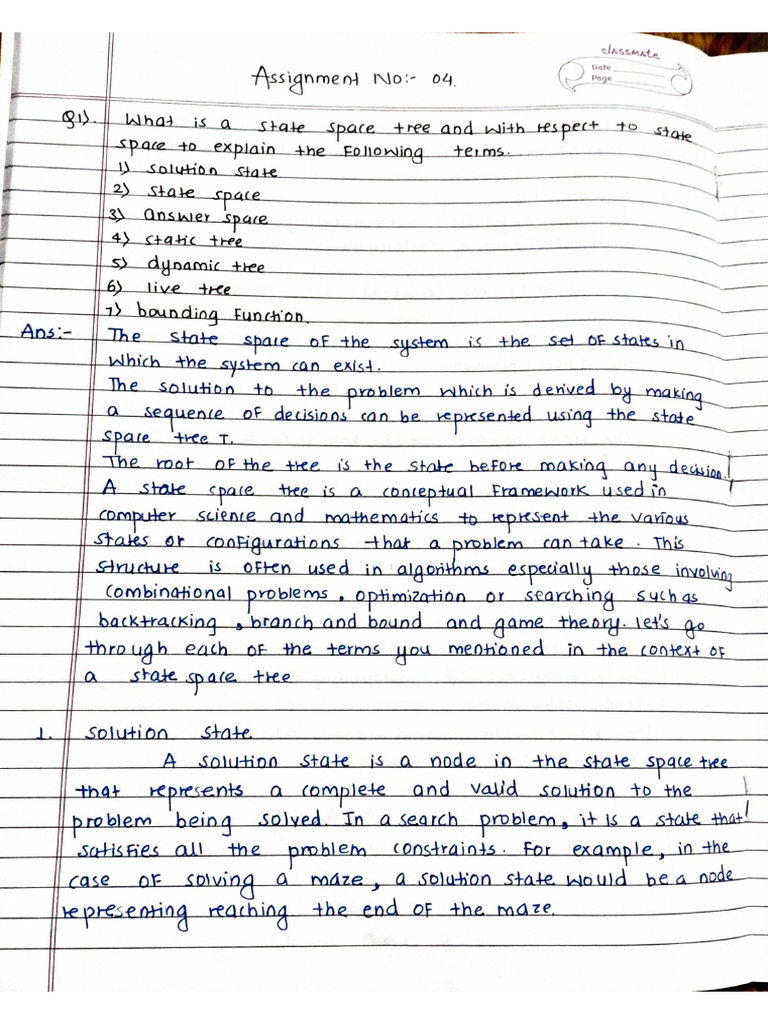 classmate
Date
Page
Assignment No:- 04.
Q1). What is a state space tree and with respect to state
space to explain the following terms.
1) solution state
2) state space
3) answer space
4) static tree
5) dynamic tree
6) live tree
7) bounding function.
Ans:- The state space of the system is the set of states in
which the system can exist.
The solution to the problem which is derived by making
a sequence of decisions can be represented using the state
space tree T.
The root of the tree is the state before making any decision.
A state space tree is a conceptual framework used in
computer science and mathematics to represent the various
states or configurations that a problem can take. This
structure is often used in algorithms especially those involving
combinational problems, optimization or searching such as
backtracking, branch and bound and game theory. let's go
through each of the terms you mentioned in the context of
a state space tree
1. solution state.
A solution state is a node in the state space tree
that represents a complete and valid solution to the
problem being solved. In a search problem, it is a state that
satisfies all the problem constraints. For example, in the
case of solving a maze, a solution state would be a node
representing reaching the end of the maze.